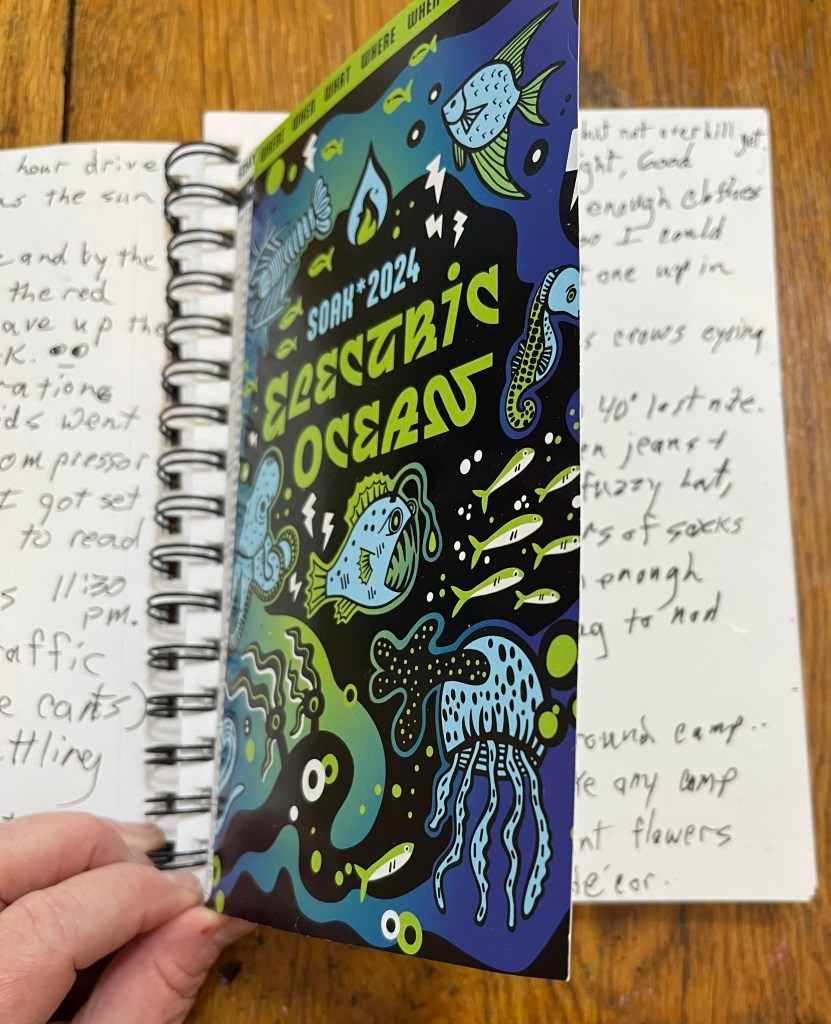 hour drive
the sun
and by the
the red
ave up the
K.
rations
ids went
ompressor
I got set
to read
s 11:30
pm.
affic
e carts)
ttling
WHERE WHEN WHAT WHERE WHEN
SOAK*2024
ELECTRIC
OCEAN
but not overkill
get
ght, Good
enough clothes
so I could
one up in
s crows eyeing
40° last nite.
n jeans +
fuzzy hat,
rs of socks
enough
g to nod
round camp..
re any camp
nt flowers
décor.